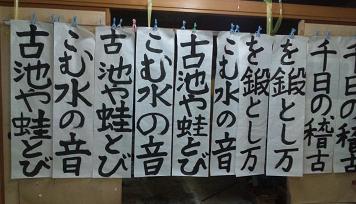 千日の稽古
千日の稽古
を鍛とし万
を鍛とし万
こむ水の音
古池や蛙とび
こむ水の音
古池や蛙とび
こむ水の音
古池や蛙とび